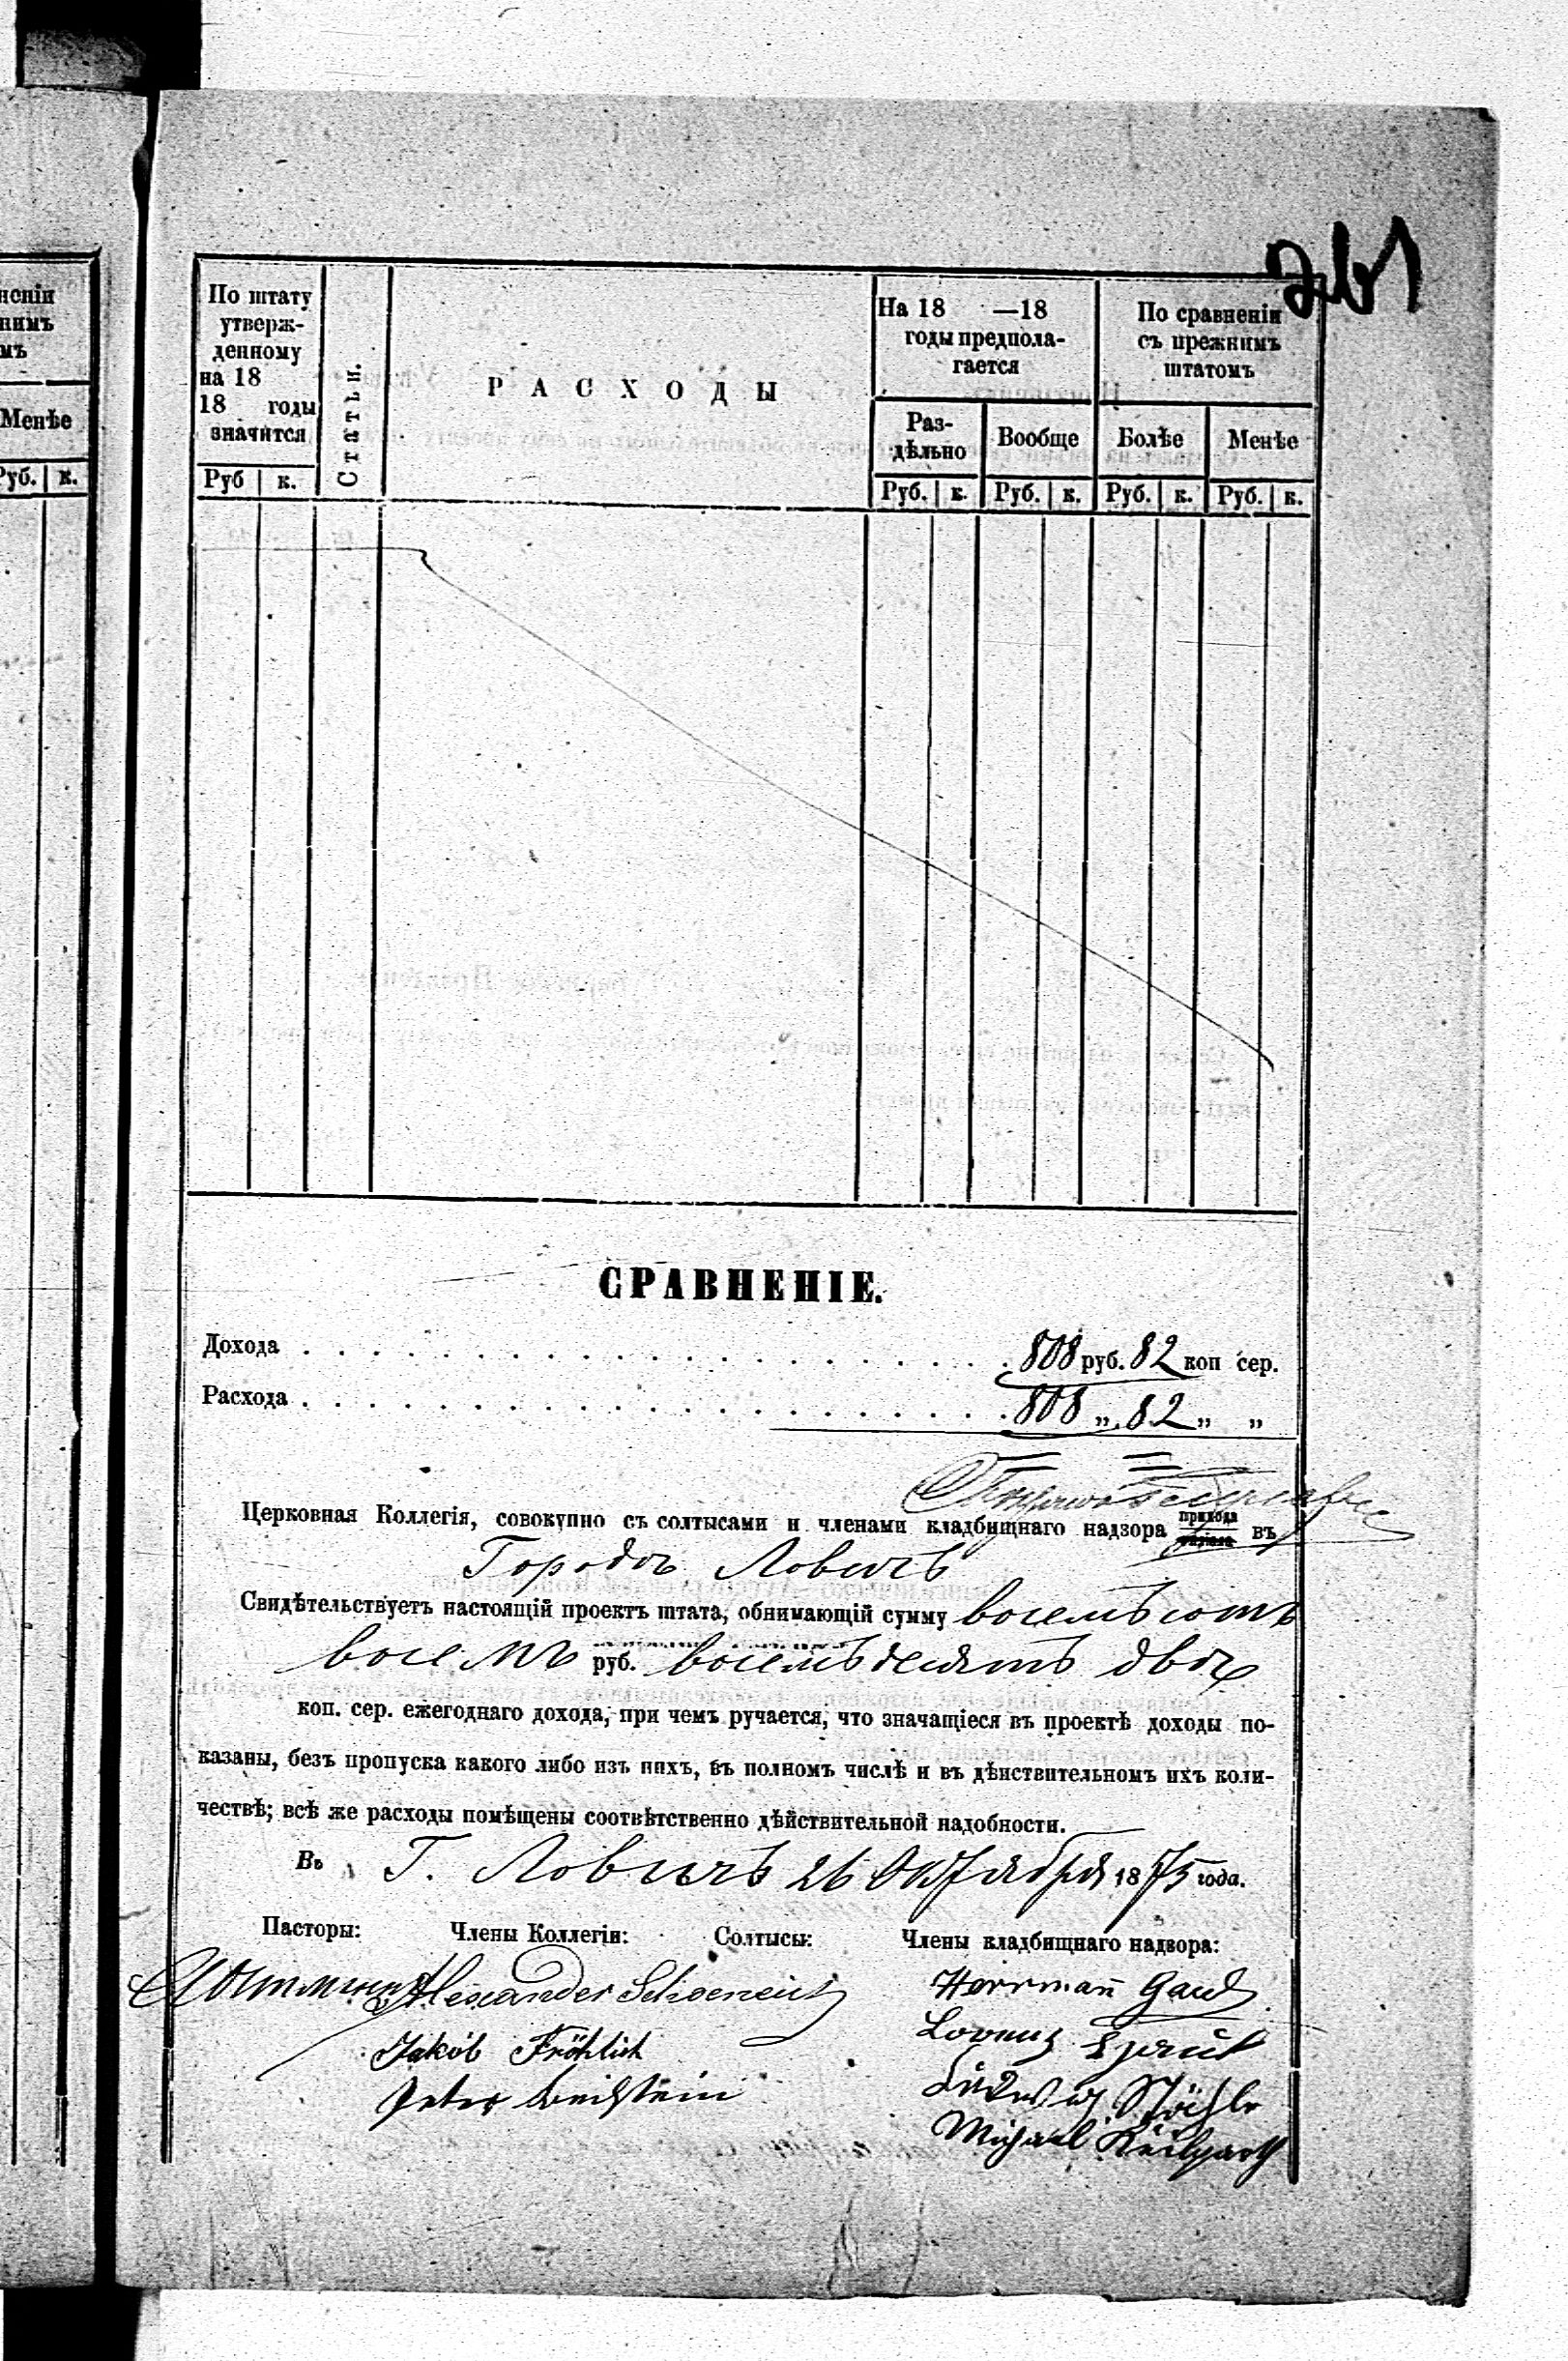 261
неніи
нимъ
мъ
Менѣе
Руб. к.
По штату
утверж-
денному
на 18
18 годы
значится
Руб к.
Статьи.
РАСХОДЫ
На 18 —18
годы предпола-
гается
Раз-
дѣльно
Руб. к.
Вообще
Руб. к.
По сравненіи
съ прежнимъ
штатомъ
Болѣе
Руб. к.
Менѣе
Руб. к.
СРАВНЕНІЕ.
Дохода . . . . . . . . . . . . . . . . . . . . 808 руб. 82 коп сер.
Расхода . . . . . . . . . . . . . . . . . . . . 808 „ 82 „ „
Церковная Коллегія, совокупно съ солтысами и членами кладбищнаго надзора прихода въ
Городѣ Ловичъ
Свидѣтельствуетъ настоящій проектъ штата, обнимающій сумму восемьсотъ
восемь руб. восемьдесятъ двѣ
коп. сер. ежегоднаго дохода, при чемъ ручается, что значащіеся въ проектѣ доходы по-
казаны, безъ пропуска какого либо изъ нихъ, въ полномъ числѣ и въ дѣйствительномъ ихъ коли-
чествѣ; всѣ же расходы помѣщены соотвѣтственно дѣйствительной надобности.
Въ Г. Ловичъ 26 Октября 1875 года.
Пасторы: Члены Коллегіи: Солтысы: Члены кладбищнаго надзора:
Alexander Schoeneich
Jakób Fröhlich
Peter
Herrmañ Gaul
Lorenz
Ludwig
Michael